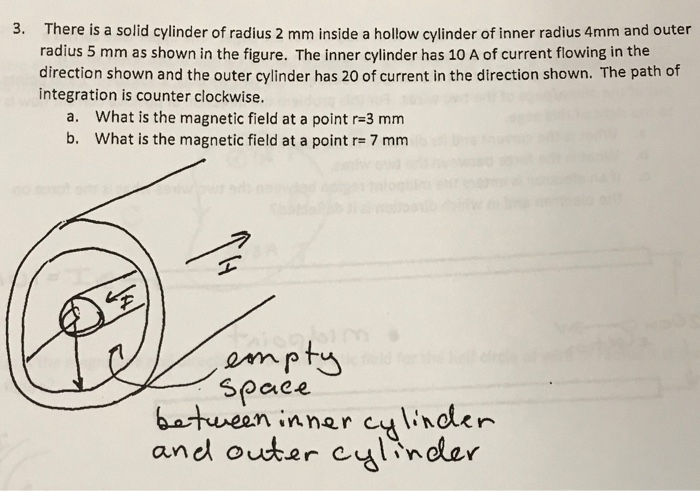 3. There is a solid cylinder of radius 2 mm inside a hollow cylinder of inner radius 4mm and outer
radius 5 mm as shown in the figure. The inner cylinder has 10 A of current flowing in the
direction shown and the outer cylinder has 20 of current in the direction shown. The path of
integration is counter clockwise.
a. What is the magnetic field at a point r=3 mm
b. What is the magnetic field at a point r= 7 mm
I
I
empty
space
between inner cylinder
and outer cylinder